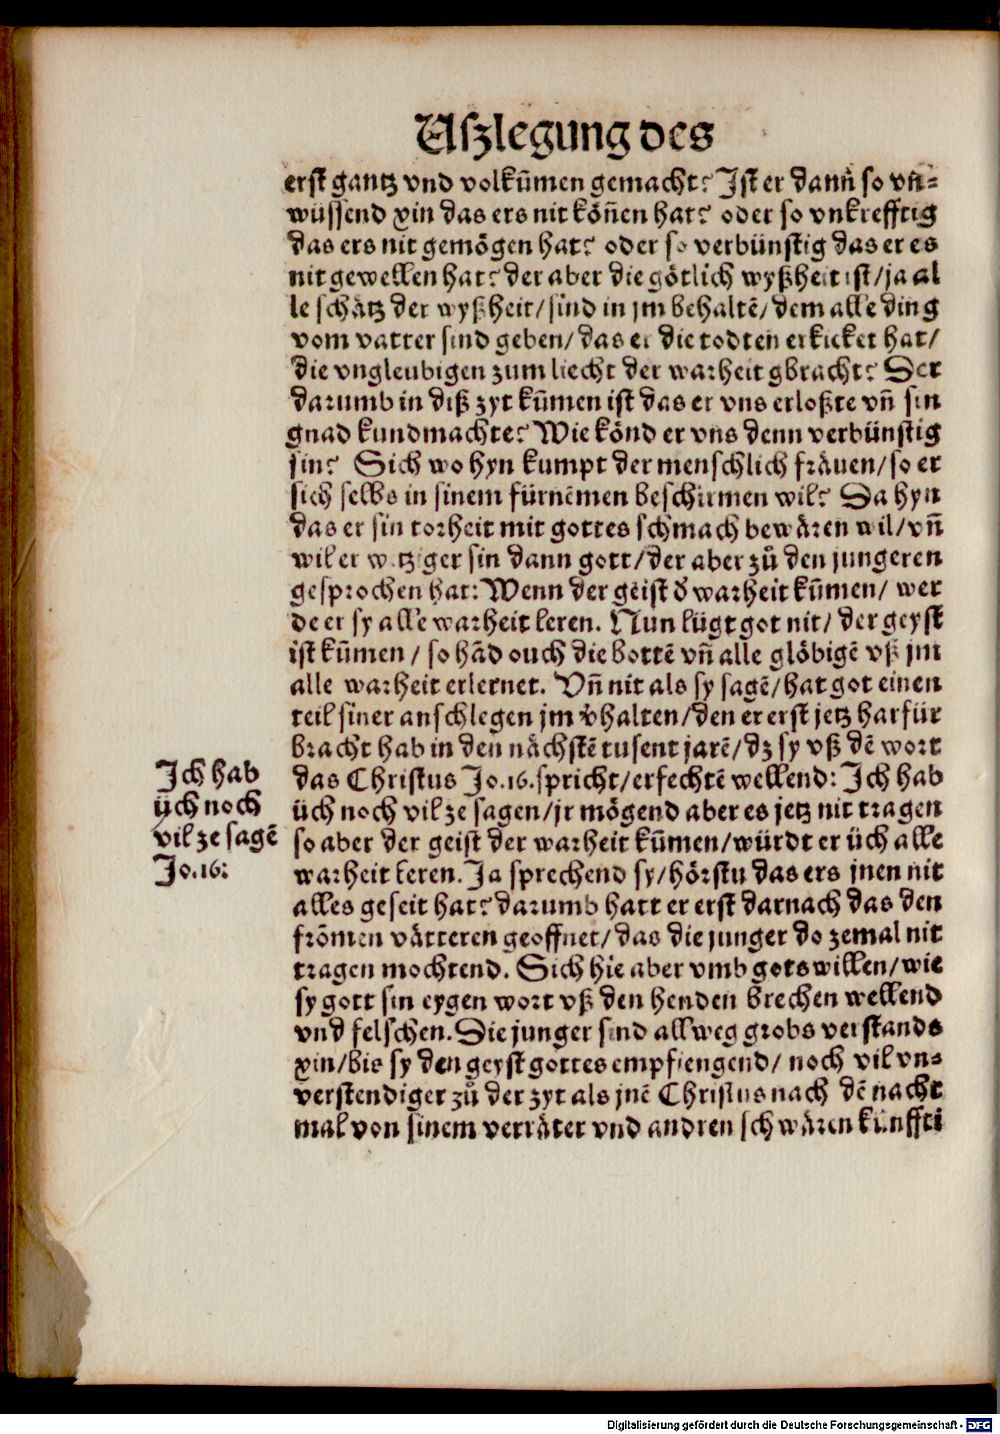 Uſzlegung des
erſt gantz vnd volkūmen gemacht? Iſt er dann ſo vn-
wüſſend xin das ers nit kön̄en hat? oder ſo vnkrefftig
das ers nit gemögen hat? oder ſo verbünſtig das er es
nit gewellen hat? der aber die götlich wyßheit iſt/ja al
le ſchätz der wyßheit/ſind in jm behaltē/dem alle ding
vom vatter ſind geben/das er die todten erkicket hat/
die vngleubigen zum liecht der warheit gbracht? Der
darumb in diß zyt kūmen iſt das er vns erloßte vn̄ ſin
gnad kundmachte? Wie könd er vns denn verbünſtig
ſin? Sich wo hyn kumpt der menſchlich fräuen/ſo er
ſich ſelbs in ſinem fürnēmen beſchirmen wil? Da hyn
das er ſin torheit mit gottes ſchmach bewären wil/vn̄
wil er witziger ſin dann gott/der aber zů den jungeren
geſprochen hat: Wenn der geiſt d̕ warheit kūmen/ wer
de er ſy alle warheit leren. Nun lügt got nit/ der geyſt
iſt kūmen / ſo hād ouch die bottē vn̄ alle glöbigē vß jm
alle warheit erlernet. Vn̄ nit als ſy ſagē/hat got einen
teil ſiner anſchlegen jm v̕halten/den er erſt jetz harfür
bracht hab in den nächſtē tuſent jarē/dz ſy vß dē wort
das Chriſtus Jo.16.ſpricht/erfechtē wellend: Ich hab
üch noch vil ze ſagen/jr mögend aber es jetz nit tragen
ſo aber der geiſt der warheit kūmen/würdt er üch alle
warheit leren. Ja ſprechend ſy/hörſtu das ers jnen nit
alles geſeit hat? darumb hatt er erſt darnach das den
frōmen vätteren geoffnet/das die junger do zemal nit
tragen mochtend. Sich hie aber vmb gots willen/wie
ſy gott ſin eygen wort vß den henden brechen wellend
vnd felſchen. Die junger ſind allweg grobs verſtands
xin/bis ſy den geyſt gottes empfiengend/ noch vil vn-
verſtendiger zů der zyt als jnē Chriſtus nach dē nacht
mal von ſinem verräter vnd andren ſchwären künffti
Ich hab
üch noch
vil ze ſagē
Jo.16:
Digitalisierung gefördert durch die Deutsche Forschungsgemeinschaft - DFG